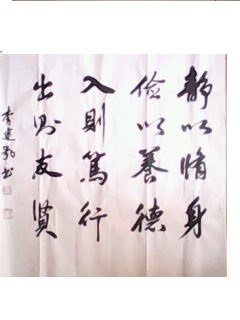 静以脩身
俭以養德
入則篤行
出則友賢
李建勃书